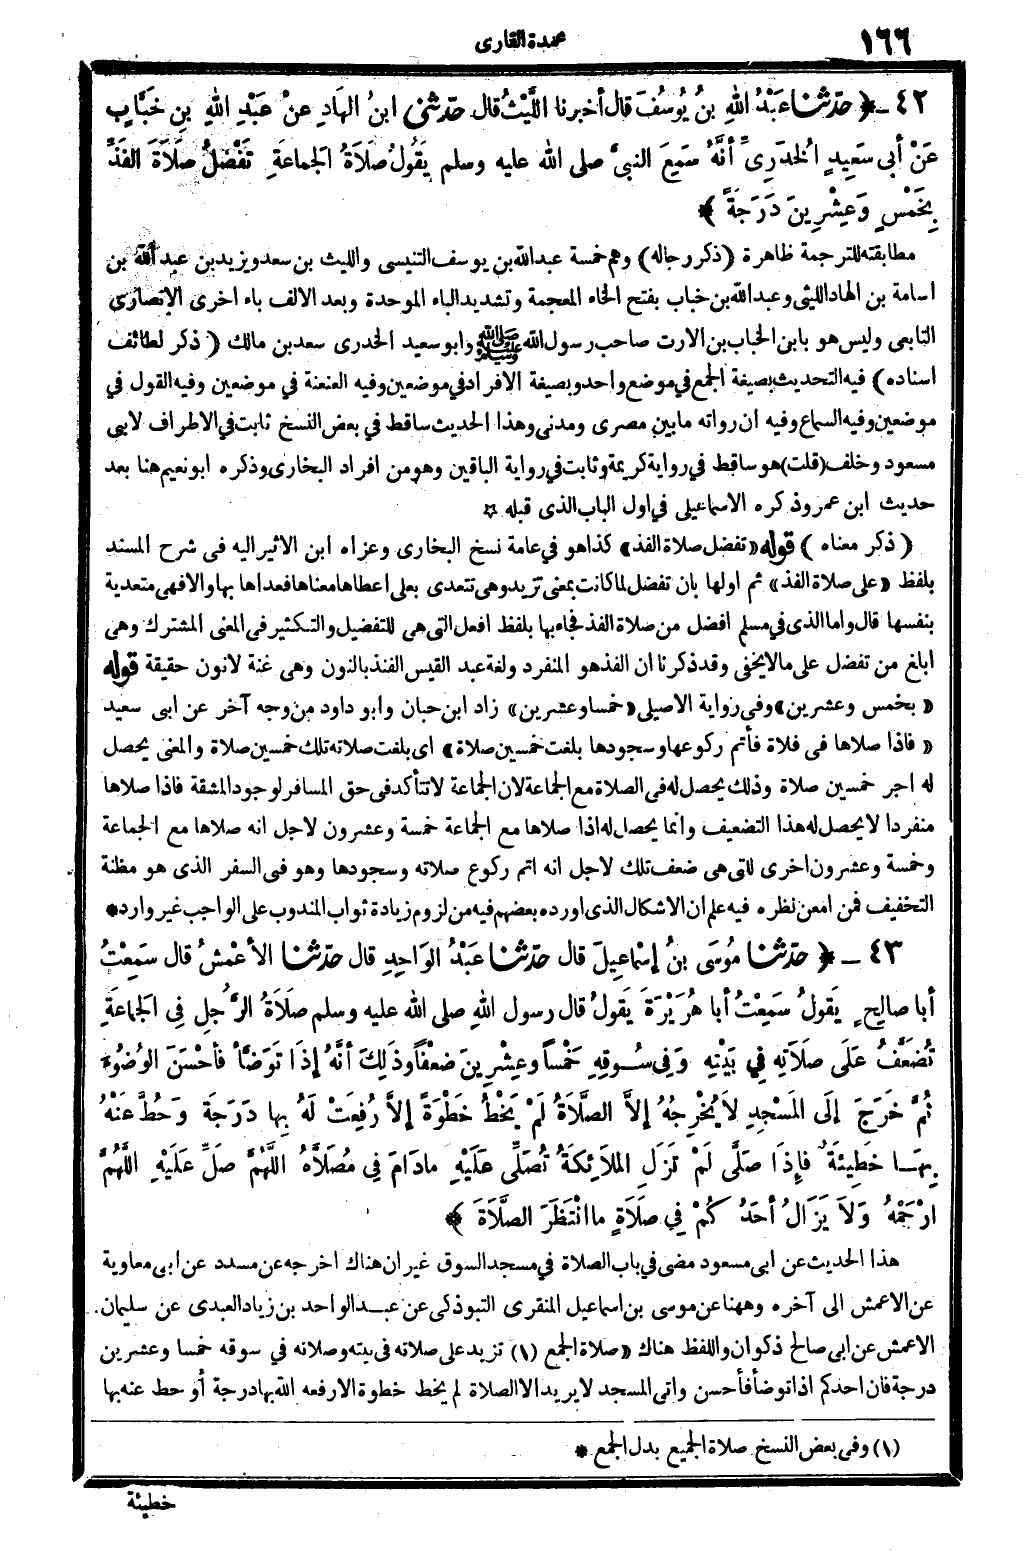 ١٦٦
عمدة القارى
٤٢ - ﴿ حدّثنا عَبْدُ اللهِ بنُ يُوسُفَ قال أخبرنا اللَّيْثُ قال حدّثنى ابنُ الهَادِ عنْ عَبْدِ اللهِ بنِ خَبَّابٍ
عَنْ أبى سَعِيدٍ الخُدْرِىِّ أنَّهُ سَمِعَ النبىَّ صلى الله عليه وسلم يَقُولُ صَلاَةُ الجَماعَةِ تَفْضُلُ صَلاَةَ الفَذِّ
بِخَمْسٍ وَعِشْرِينَ دَرَجَةً ﴾
مطابقته للترجمة ظاهرة (ذكر رجاله) وهم خمسة عبدالله بن يوسف التنيسى والليث بن سعد ويزيد بن عبد الله بن
اسامة بن الهاد الليثى وعبدالله بن خباب بفتح الخاء المعجمة وتشديد الباء الموحدة وبعد الالف باء اخرى الانصارى
التابعى وليس هو بابن الخباب بن الارت صاحب رسول الله ﷺ وابو سعيد الخدرى سعد بن مالك (ذكر لطائف
اسناده) فيه التحديث بصيغة الجمع فى موضع واحد وبصيغة الافراد فى موضعين وفيه العنعنة فى موضعين وفيه القول فى
موضعين وفيه السماع وفيه ان رواته مابين مصرى ومدنى وهذا الحديث ساقط فى بعض النسخ ثابت فى الاطراف لابى
مسعود وخلف (قلت) هو ساقط فى رواية كريمة وثابت فى رواية الباقين وهو من افراد البخارى وذكره ابو نعيم هنا بعد
حديث ابن عمر وذكره الاسماعيلى فى اول الباب الذى قبله ☆
(ذكر معناه) قوله «تفضل صلاة الفذ» كذا هو فى عامة نسخ البخارى وعزاه ابن الاثير اليه فى شرح المسند
بلفظ «على صلاة الفذ» ثم اولها بان تفضل لما كانت بمعنى تزيد وهى تتعدى بعلى اعطاها معناها فعداها بها والا فهى متعدية
بنفسها قال واما الذى فى مسلم افضل من صلاة الفذ فجاء بها بلفظ افعل التى هى للتفضيل والتكثير فى المعنى المشترك وهى
ابلغ من تفضل على مالا يخفى وقد ذكرنا ان الفذ هو المنفرد ولغة عبد القيس الفنذ بالنون وهى غنة لانون حقيقة قوله
«بخمس وعشرين» وفى رواية الاصيلى «خمسا وعشرين» زاد ابن حبان وابو داود من وجه آخر عن ابى سعيد
«فاذا صلاها فى فلاة فأتم ركوعها وسجودها بلغت خمسين صلاة» اى بلغت صلاته تلك خمسين صلاة والمعنى يحصل
له اجر خمسين صلاة وذلك يحصل له فى الصلاة مع الجماعة لان الجماعة لا تتأكد فى حق المسافر لوجود المشقة فاذا صلاها
منفردا لا يحصل له هذا التضعيف وانما يحصل له اذا صلاها مع الجماعة خمسة وعشرون لاجل انه صلاها مع الجماعة
وخمسة وعشرون اخرى للتى هى ضعف تلك لاجل انه اتم ركوع صلاته وسجودها وهو فى السفر الذى هو مظنة
التخفيف فمن امعن نظره فيه علم ان الاشكال الذى اورده بعضهم فيه من لزوم زيادة ثواب المندوب على الواجب غير وارد *
٤٣ - ﴿ حدّثنا مُوسَى بنُ إسْماعِيلَ قال حدّثنا عَبْدُ الوَاحِدِ قال حدّثنا الأعْمَشُ قال سَمِعْتُ
أبا صالِحٍ يَقُولُ سَمِعْتُ أبا هُرَيْرَةَ يَقُولُ قال رسول اللهِ صلى الله عليه وسلم صَلاَةُ الرَّجُلِ فى الجَماعَةِ
تُضَعَّفُ عَلَى صَلاَتِهِ فى بَيْتِهِ وَفى سُوقِهِ خَمْساً وعِشْرِينَ ضِعْفاً وذَلِكَ أنَّهُ إذَا تَوَضَّأَ فأحْسَنَ الوُضُوءَ
ثُمَّ خَرَجَ إلَى المَسْجِدِ لاَ يُخْرِجُهُ إلاَّ الصَّلاَةُ لَمْ يَخْطُ خَطْوَةً إلاَّ رُفِعَتْ لَهُ بِها دَرَجَةٌ وَحُطَّ عَنْهُ
بِهَا خَطِيئَةٌ فإذَا صَلَّى لَمْ تَزَلِ المَلاَئِكَةُ تُصَلِّى عَلَيْهِ مادَامَ فى مُصَلاَّهُ اللَّهُمَّ صَلِّ عَلَيْهِ اللَّهُمَّ
ارْحَمْهُ وَلاَ يَزَالُ أحَدُكُمْ فى صَلاَةٍ ما انْتَظَرَ الصَّلاَةَ ﴾
هذا الحديث عن ابى مسعود مضى فى باب الصلاة فى مسجد السوق غير ان هناك اخرجه عن مسدد عن ابى معاوية
عن الاعمش الى آخره وههنا عن موسى بن اسماعيل المنقرى التبوذكى عن عبد الواحد بن زياد العبدى عن سليمان
الاعمش عن ابى صالح ذكوان واللفظ هناك «صلاة الجمع (١) تزيد على صلاته فى بيته وصلاته فى سوقه خمسا وعشرين
درجة فان احدكم اذا توضأ فأحسن واتى المسجد لا يريد الا الصلاة لم يخط خطوة الا رفعه الله بها درجة أو حط عنه بها
(١) وفى بعض النسخ صلاة الجميع بدل الجمع *
خطيئة